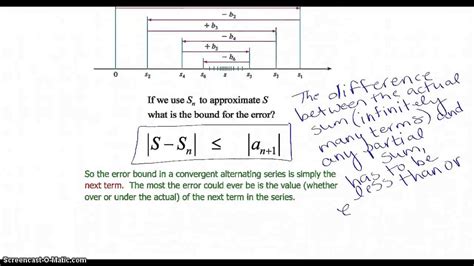 - b₂
+ b₃
- b₄
+ b₅
- b₆
0 s₂ s₄ s₆ s s₅ s₃ s₁
If we use Sₙ to approximate S
what is the bound for the error?
|S - Sₙ| ≤ |aₙ₊₁|
So the error bound in a convergent alternating series is simply the
next term. The most the error could ever be is the value (whether
over or under the actual) of the next term in the series.
The difference
between the actual
sum (infinitely
many terms) and
any partial
sum,
has to be
less than or
e
Screencast-O-Matic.com
0:00